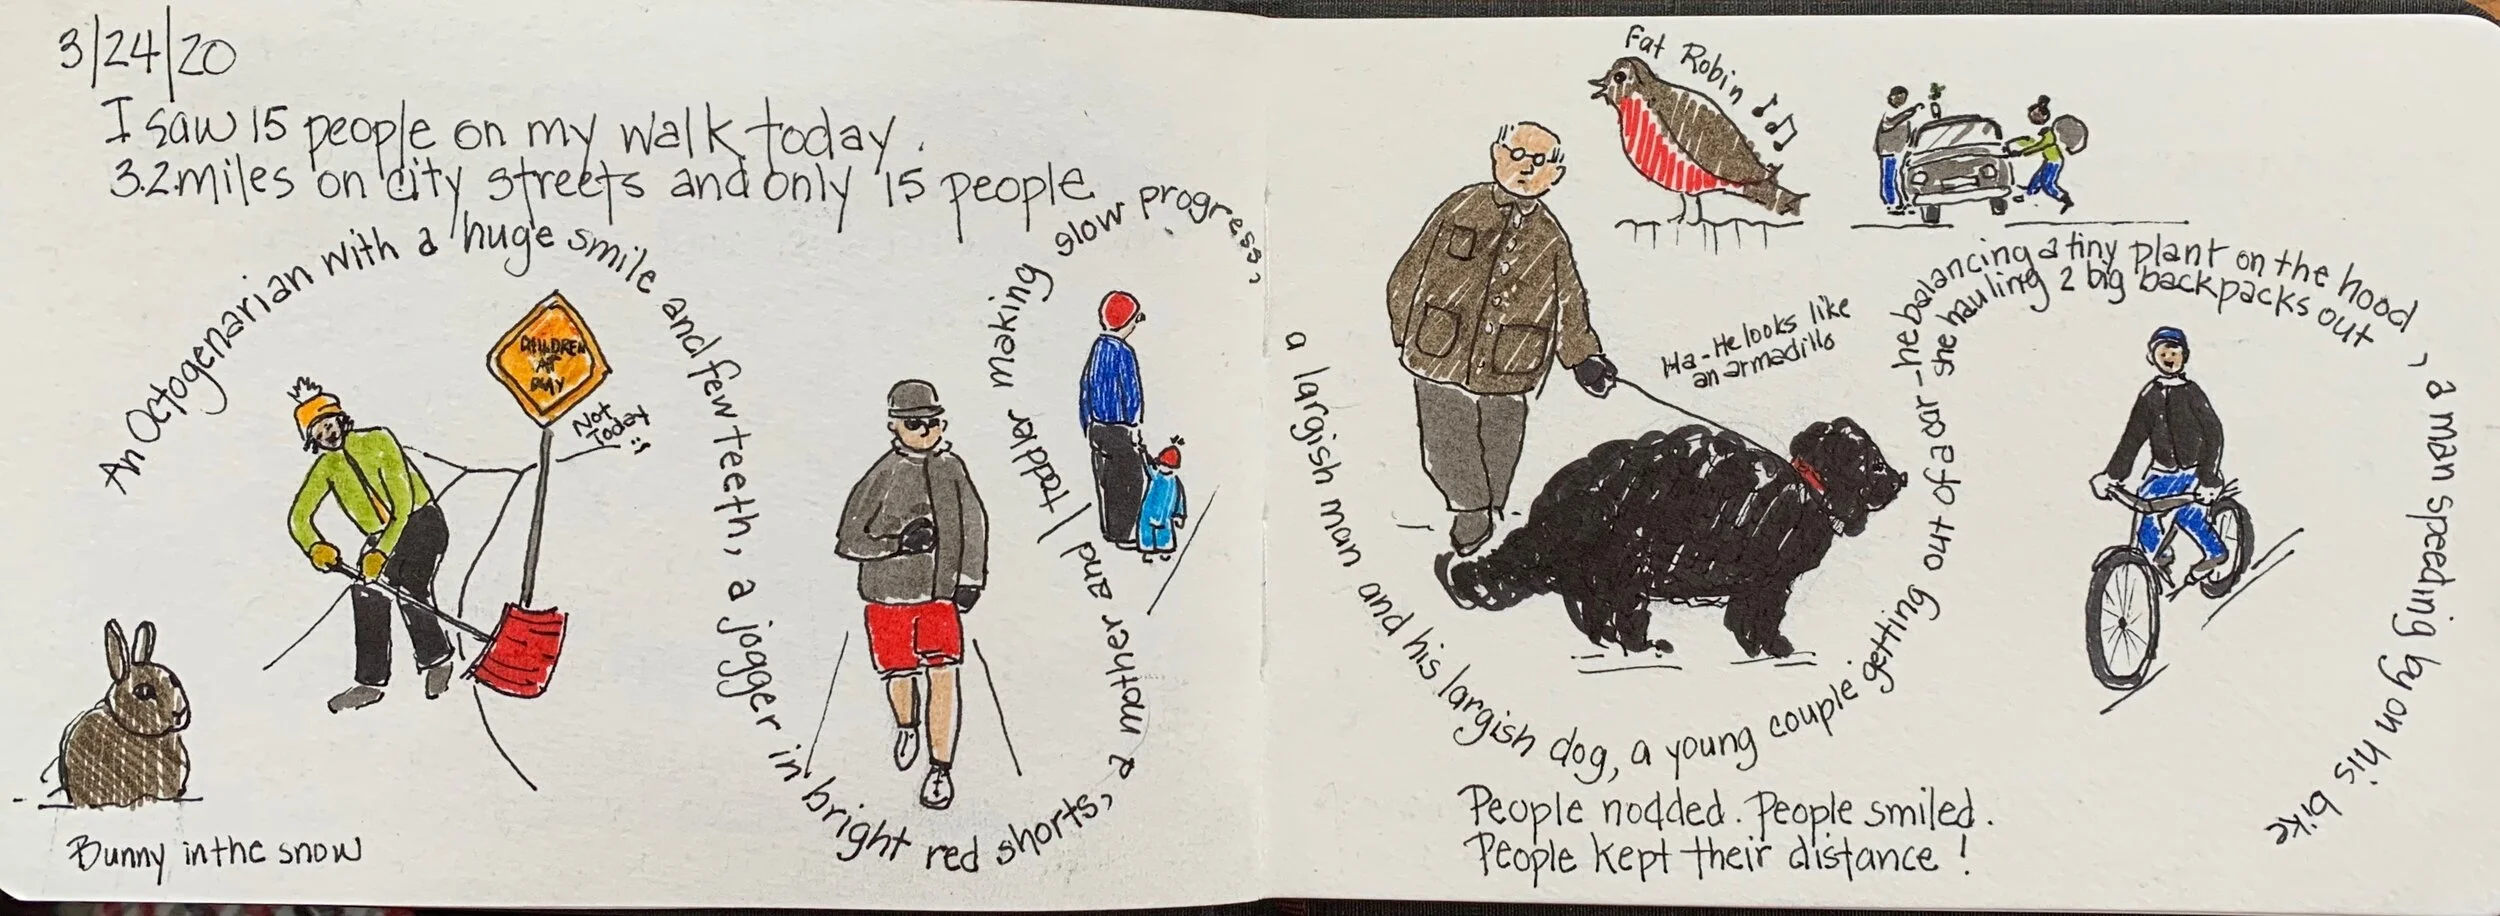 3/24/20
I saw 15 people on my walk today.
3.2 miles on city streets and only 15 people
An Octogenarian with a huge smile and few teeth, a jogger in bright red shorts, a mother and toddler making slow progress,
CHILDREN
AT
PLAY
Not
Today
Bunny in the snow
Fat Robin
a largish man and his largish dog, a young couple getting out of a car - he balancing a tiny plant on the hood
she hauling 2 big backpacks out
, a man speeding by on his bike
Ha - He looks like
an armadillo
People nodded. People smiled.
People kept their distance!